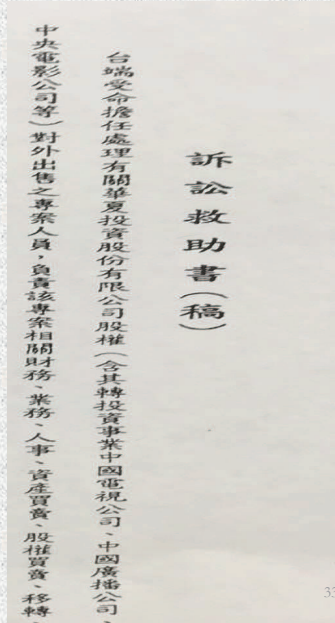 訴訟救助書(稿)
台端受命擔任處理有關華夏投資股份有限公司股權(含其轉投資事業中國電視公司、中國廣播公司、
中央電影公司等)對外出售之專案人員,負責該專案相關財務、業務、人事、資產買賣、股權買賣、移轉、
33